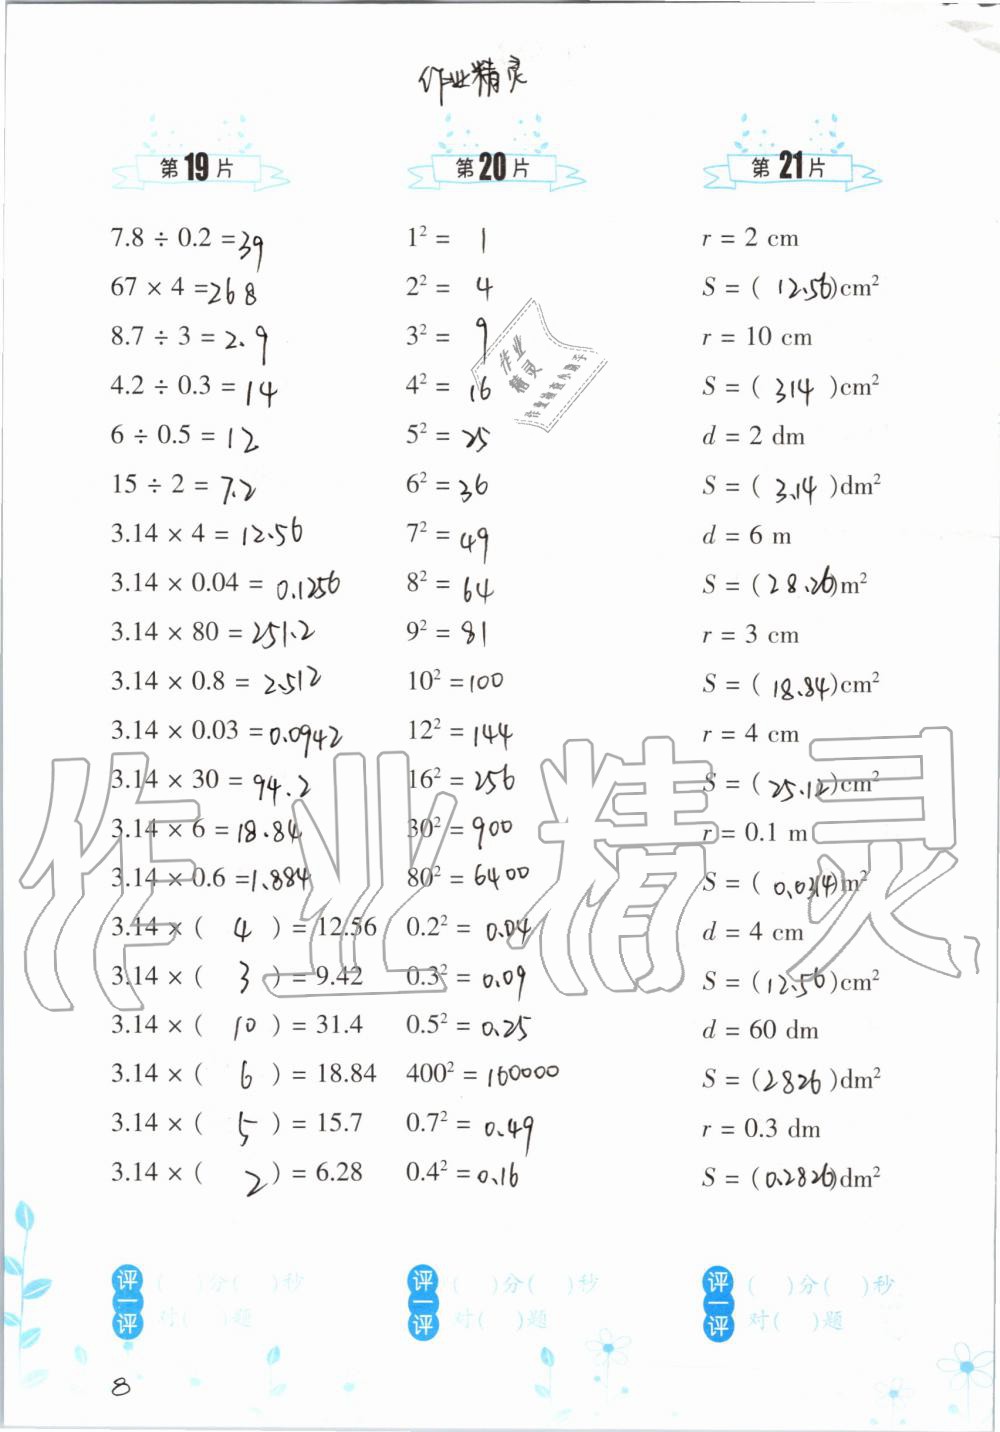 作业精灵
第19片
7.8 ÷ 0.2 = 39
67 × 4 = 268
8.7 ÷ 3 = 2.9
4.2 ÷ 0.3 = 14
6 ÷ 0.5 = 12
15 ÷ 2 = 7.2
3.14 × 4 = 12.56
3.14 × 0.04 = 0.1256
3.14 × 80 = 251.2
3.14 × 0.8 = 2.512
3.14 × 0.03 = 0.0942
3.14 × 30 = 94.2
3.14 × 6 = 18.84
3.14 × 0.6 = 1.884
3.14 × ( 4 ) = 12.56
3.14 × ( 3 ) = 9.42
3.14 × ( 10 ) = 31.4
3.14 × ( 6 ) = 18.84
3.14 × ( 5 ) = 15.7
3.14 × ( 2 ) = 6.28
评一评
( )分( )秒
对( )题
第20片
1² = 1
2² = 4
3² = 9
4² = 16
5² = 25
6² = 36
7² = 49
8² = 64
9² = 81
10² = 100
12² = 144
16² = 256
30² = 900
80² = 6400
0.2² = 0.04
0.3² = 0.09
0.5² = 0.25
400² = 160000
0.7² = 0.49
0.4² = 0.16
评一评
( )分( )秒
对( )题
第21片
r = 2 cm
S = ( 12.56 )cm²
r = 10 cm
S = ( 314 )cm²
d = 2 dm
S = ( 3.14 )dm²
d = 6 m
S = ( 28.26 )m²
r = 3 cm
S = ( 18.84 )cm²
r = 4 cm
S = ( 25.12 )cm²
r = 0.1 m
S = ( 0.0314 )m²
d = 4 cm
S = ( 12.56 )cm²
d = 60 dm
S = ( 2826 )dm²
r = 0.3 dm
S = ( 0.2826 )dm²
评一评
( )分( )秒
对( )题
8
作业精灵
作业
精灵